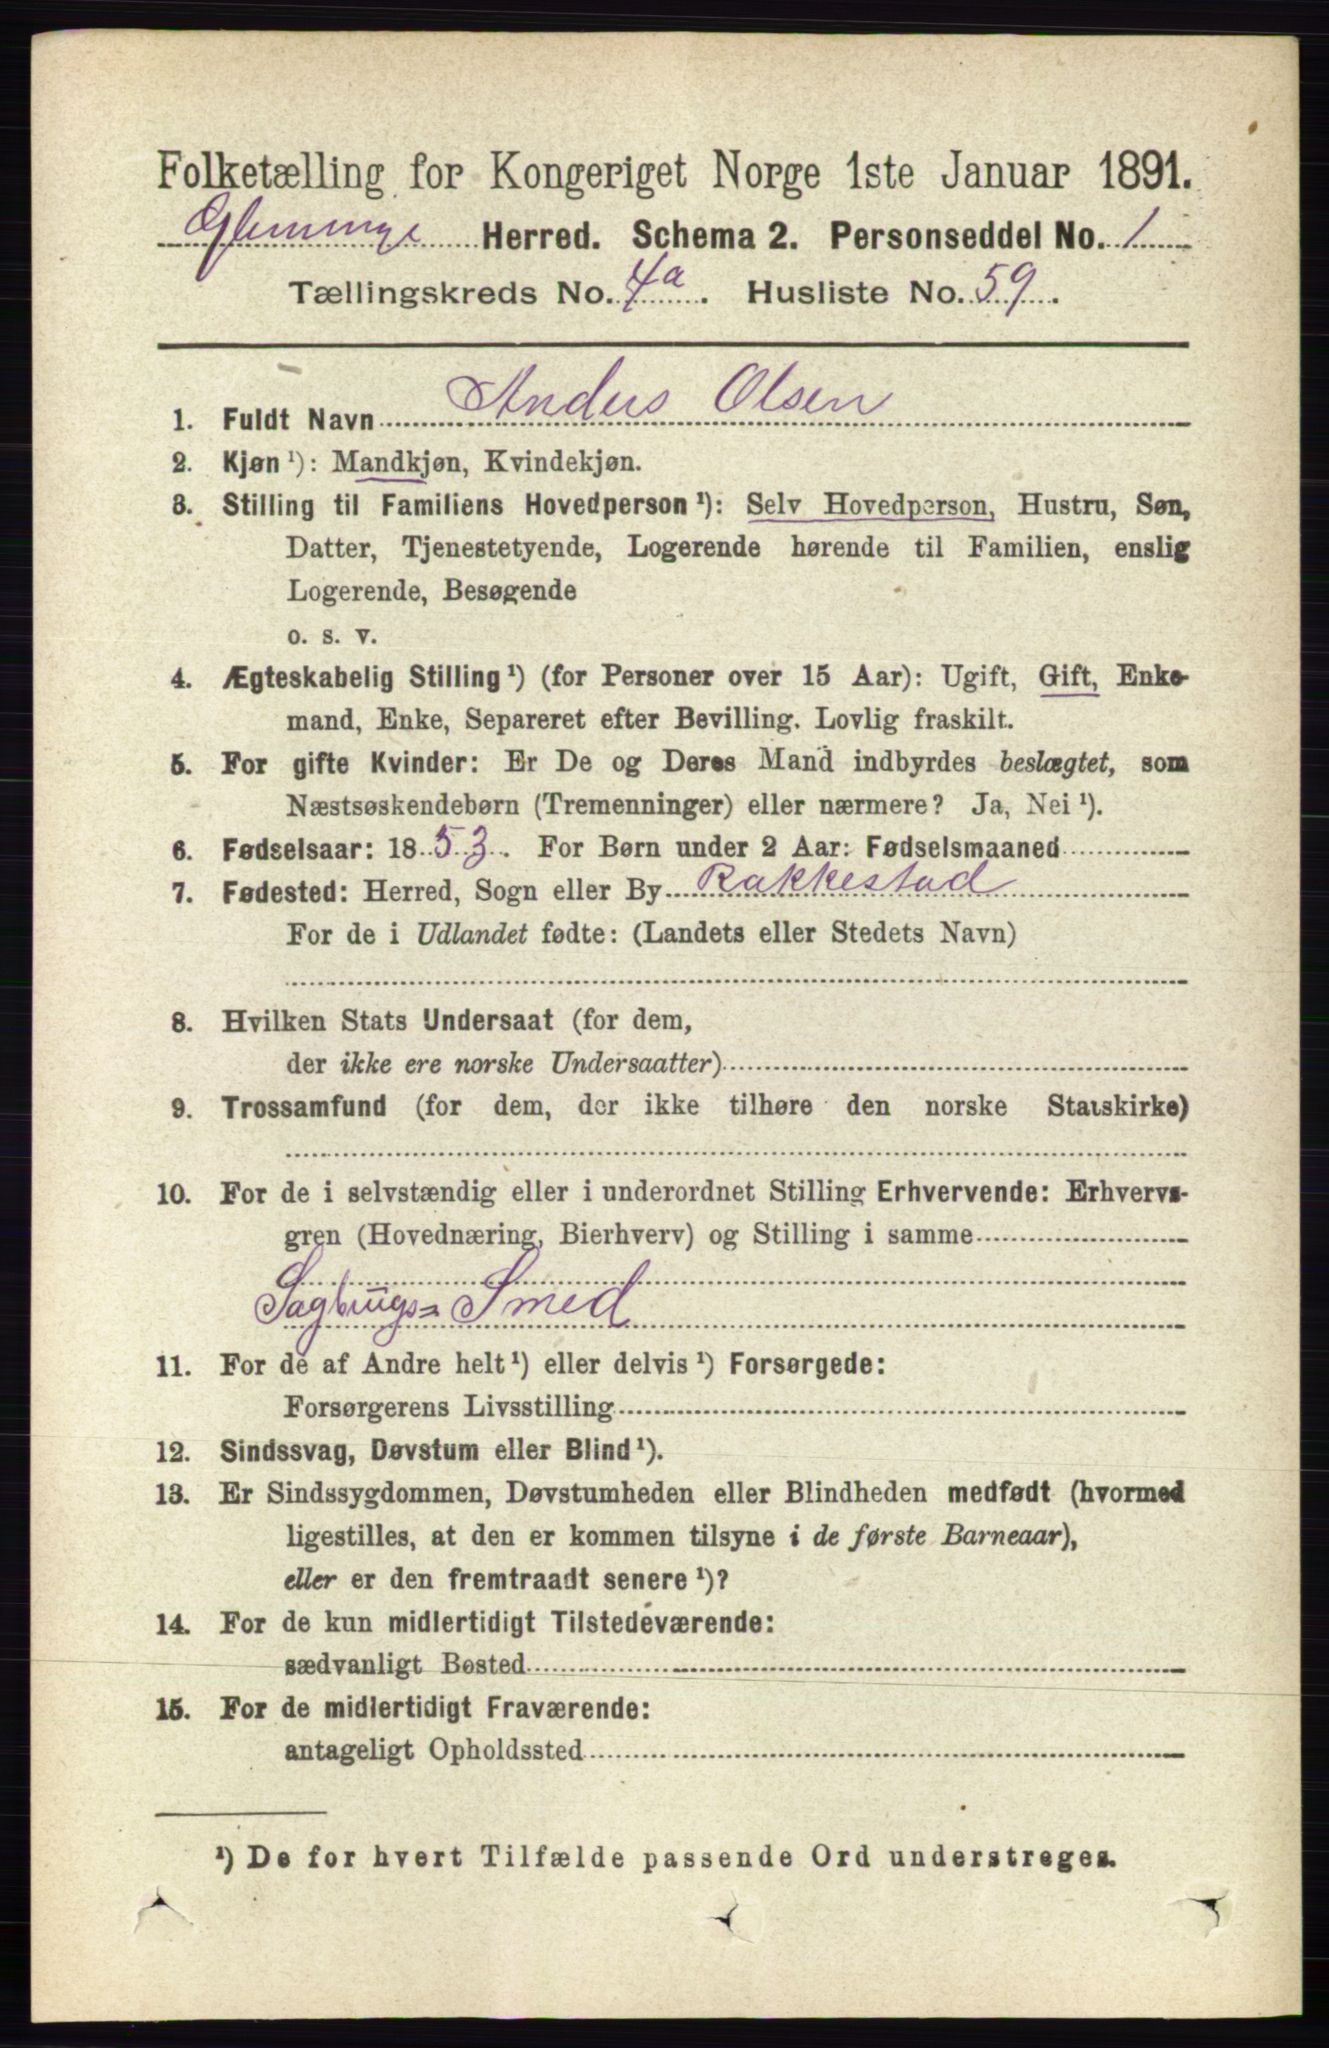 Folketælling for Kongeriget Norge 1ste Januar 1891.
Glemminge Herred. Schema 2. Personseddel No. 1
Tællingskreds No. 4a. Husliste No. 59.
1. Fuldt Navn Anders Olsen
2. Kjøn ¹): Mandkjøn, Kvindekjøn.
3. Stilling til Familiens Hovedperson ¹): Selv Hovedperson, Hustru, Søn,
Datter, Tjenestetyende, Logerende hørende til Familien, enslig
Logerende, Besøgende
o. s. v.
4. Ægteskabelig Stilling ¹) (for Personer over 15 Aar): Ugift, Gift, Enke-
mand, Enke, Separeret efter Bevilling. Lovlig fraskilt.
5. For gifte Kvinder: Er De og Deres Mand indbyrdes beslægtet, som
Næstsøskendebørn (Tremenninger) eller nærmere? Ja, Nei ¹).
6. Fødselsaar: 1853. For Børn under 2 Aar: Fødselsmaaned
7. Fødested: Herred, Sogn eller By Rakkestad
For de i Udlandet fødte: (Landets eller Stedets Navn)
8. Hvilken Stats Undersaat (for dem,
der ikke ere norske Undersaatter)
9. Trossamfund (for dem, der ikke tilhøre den norske Statskirke)
10. For de i selvstændig eller i underordnet Stilling Erhvervende: Erhvervs-
gren (Hovednæring, Bierhverv) og Stilling i samme
Sagbrugs= Smed
11. For de af Andre helt ¹) eller delvis ¹) Forsørgede:
Forsørgerens Livsstilling
12. Sindssvag, Døvstum eller Blind ¹).
13. Er Sindssygdommen, Døvstumheden eller Blindheden medfødt (hvormed
ligestilles, at den er kommen tilsyne i de første Barneaar),
eller er den fremtraadt senere ¹)?
14. For de kun midlertidigt Tilstedeværende:
sædvanligt Bosted
15. For de midlertidigt Fraværende:
antageligt Opholdssted
¹) De for hvert Tilfælde passende Ord understreges.